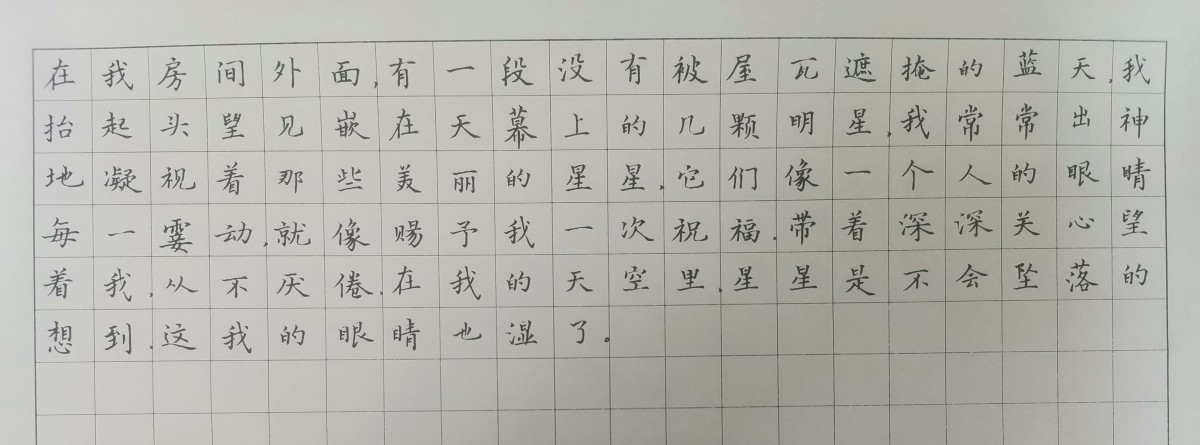 在我房间外面,有一段没有被屋瓦遮掩的蓝天,我
抬起头望见嵌在天幕上的几颗明星,我常常出神
地凝视着那些美丽的星星,它们像一个人的眼睛
每一霎动,就像赐予我一次祝福.带着深深关心望
着我,从不厌倦.在我的天空里,星星是不会坠落的
想到,这我的眼睛也湿了。